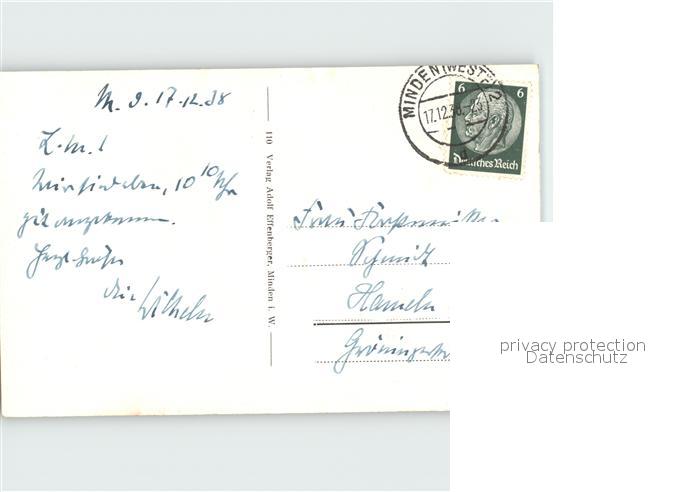 M. d. 17.12.38
L. M.!
Wir sind eben, 10 10 Uhr
gut angekommen.
Herzl. Grüße
Dein Wilhelm
110 Verlag Adolf Effenberger, Minden i. W.
MINDEN (WESTF) 2
17.12.38
6 6
Deutsches Reich
Frau
Schmidt
Hameln
privacy protection
Datenschutz